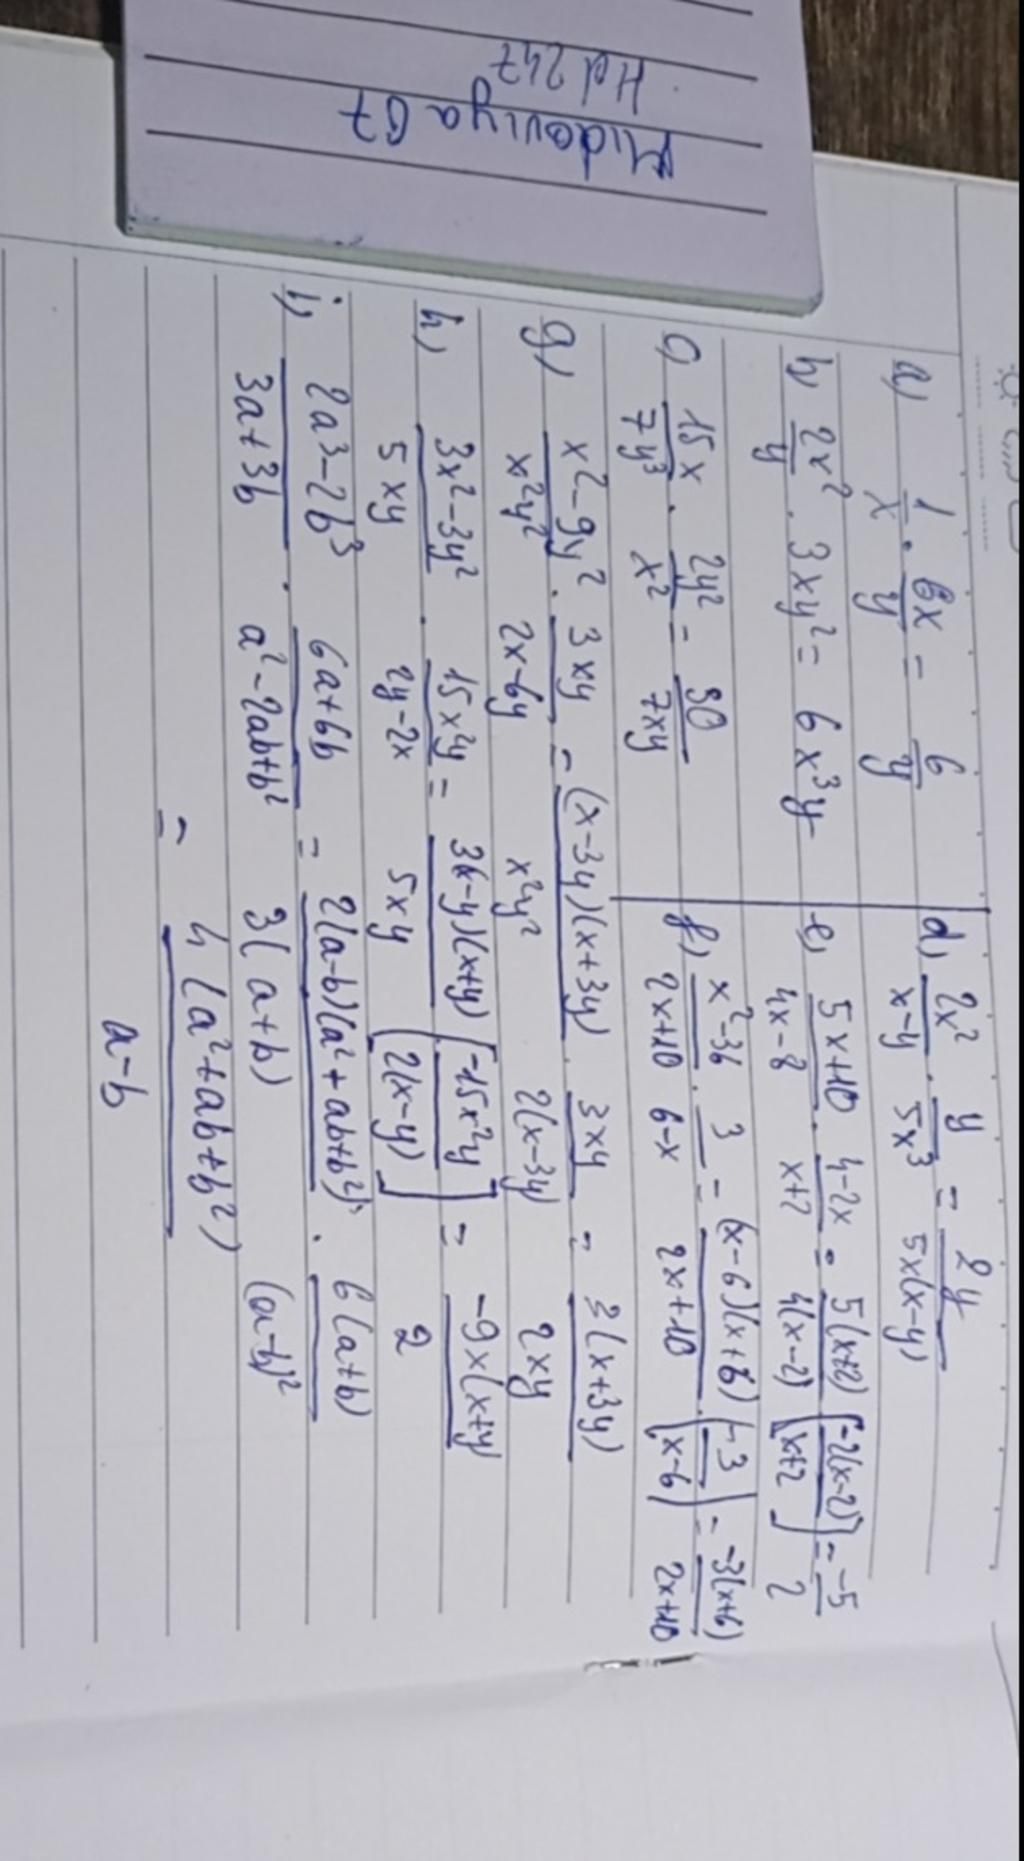 Midoviya 67
Hd 247
a) 1/x . 6x/y = 6/y
b) 2x²/y . 3xy² = 6x³y
c) 15x/7y³ . 2y²/x² = 30/7xy
d) 2x²/x-y . y/5x³ = 2y/5x(x-y)
e) 5x+10/4x-8 . 4-2x/x+2 = 5(x+2)/4(x-2) [-2(x-2)/x+2] = -5/2
f) x²-36/2x+10 . 3/6-x = (x-6)(x+6)/2x+10 . (-3/x-6) = -3(x+6)/2x+10
g) x²-9y²/x²y² . 3xy/2x-6y = (x-3y)(x+3y)/x²y² . 3xy/2(x-3y) = 3(x+3y)/2xy
h) 3x²-3y²/5xy . 15x²y/2y-2x = 3(x-y)(x+y)/5xy [-15x²y/2(x-y)] = -9x(x+y)/2
i) 2a³-2b³/3a+3b . 6a+6b/a²-2ab+b² = 2(a-b)(a²+ab+b²)/3(a+b) . 6(a+b)/(a-b)²
= 4(a²+ab+b²)/a-b